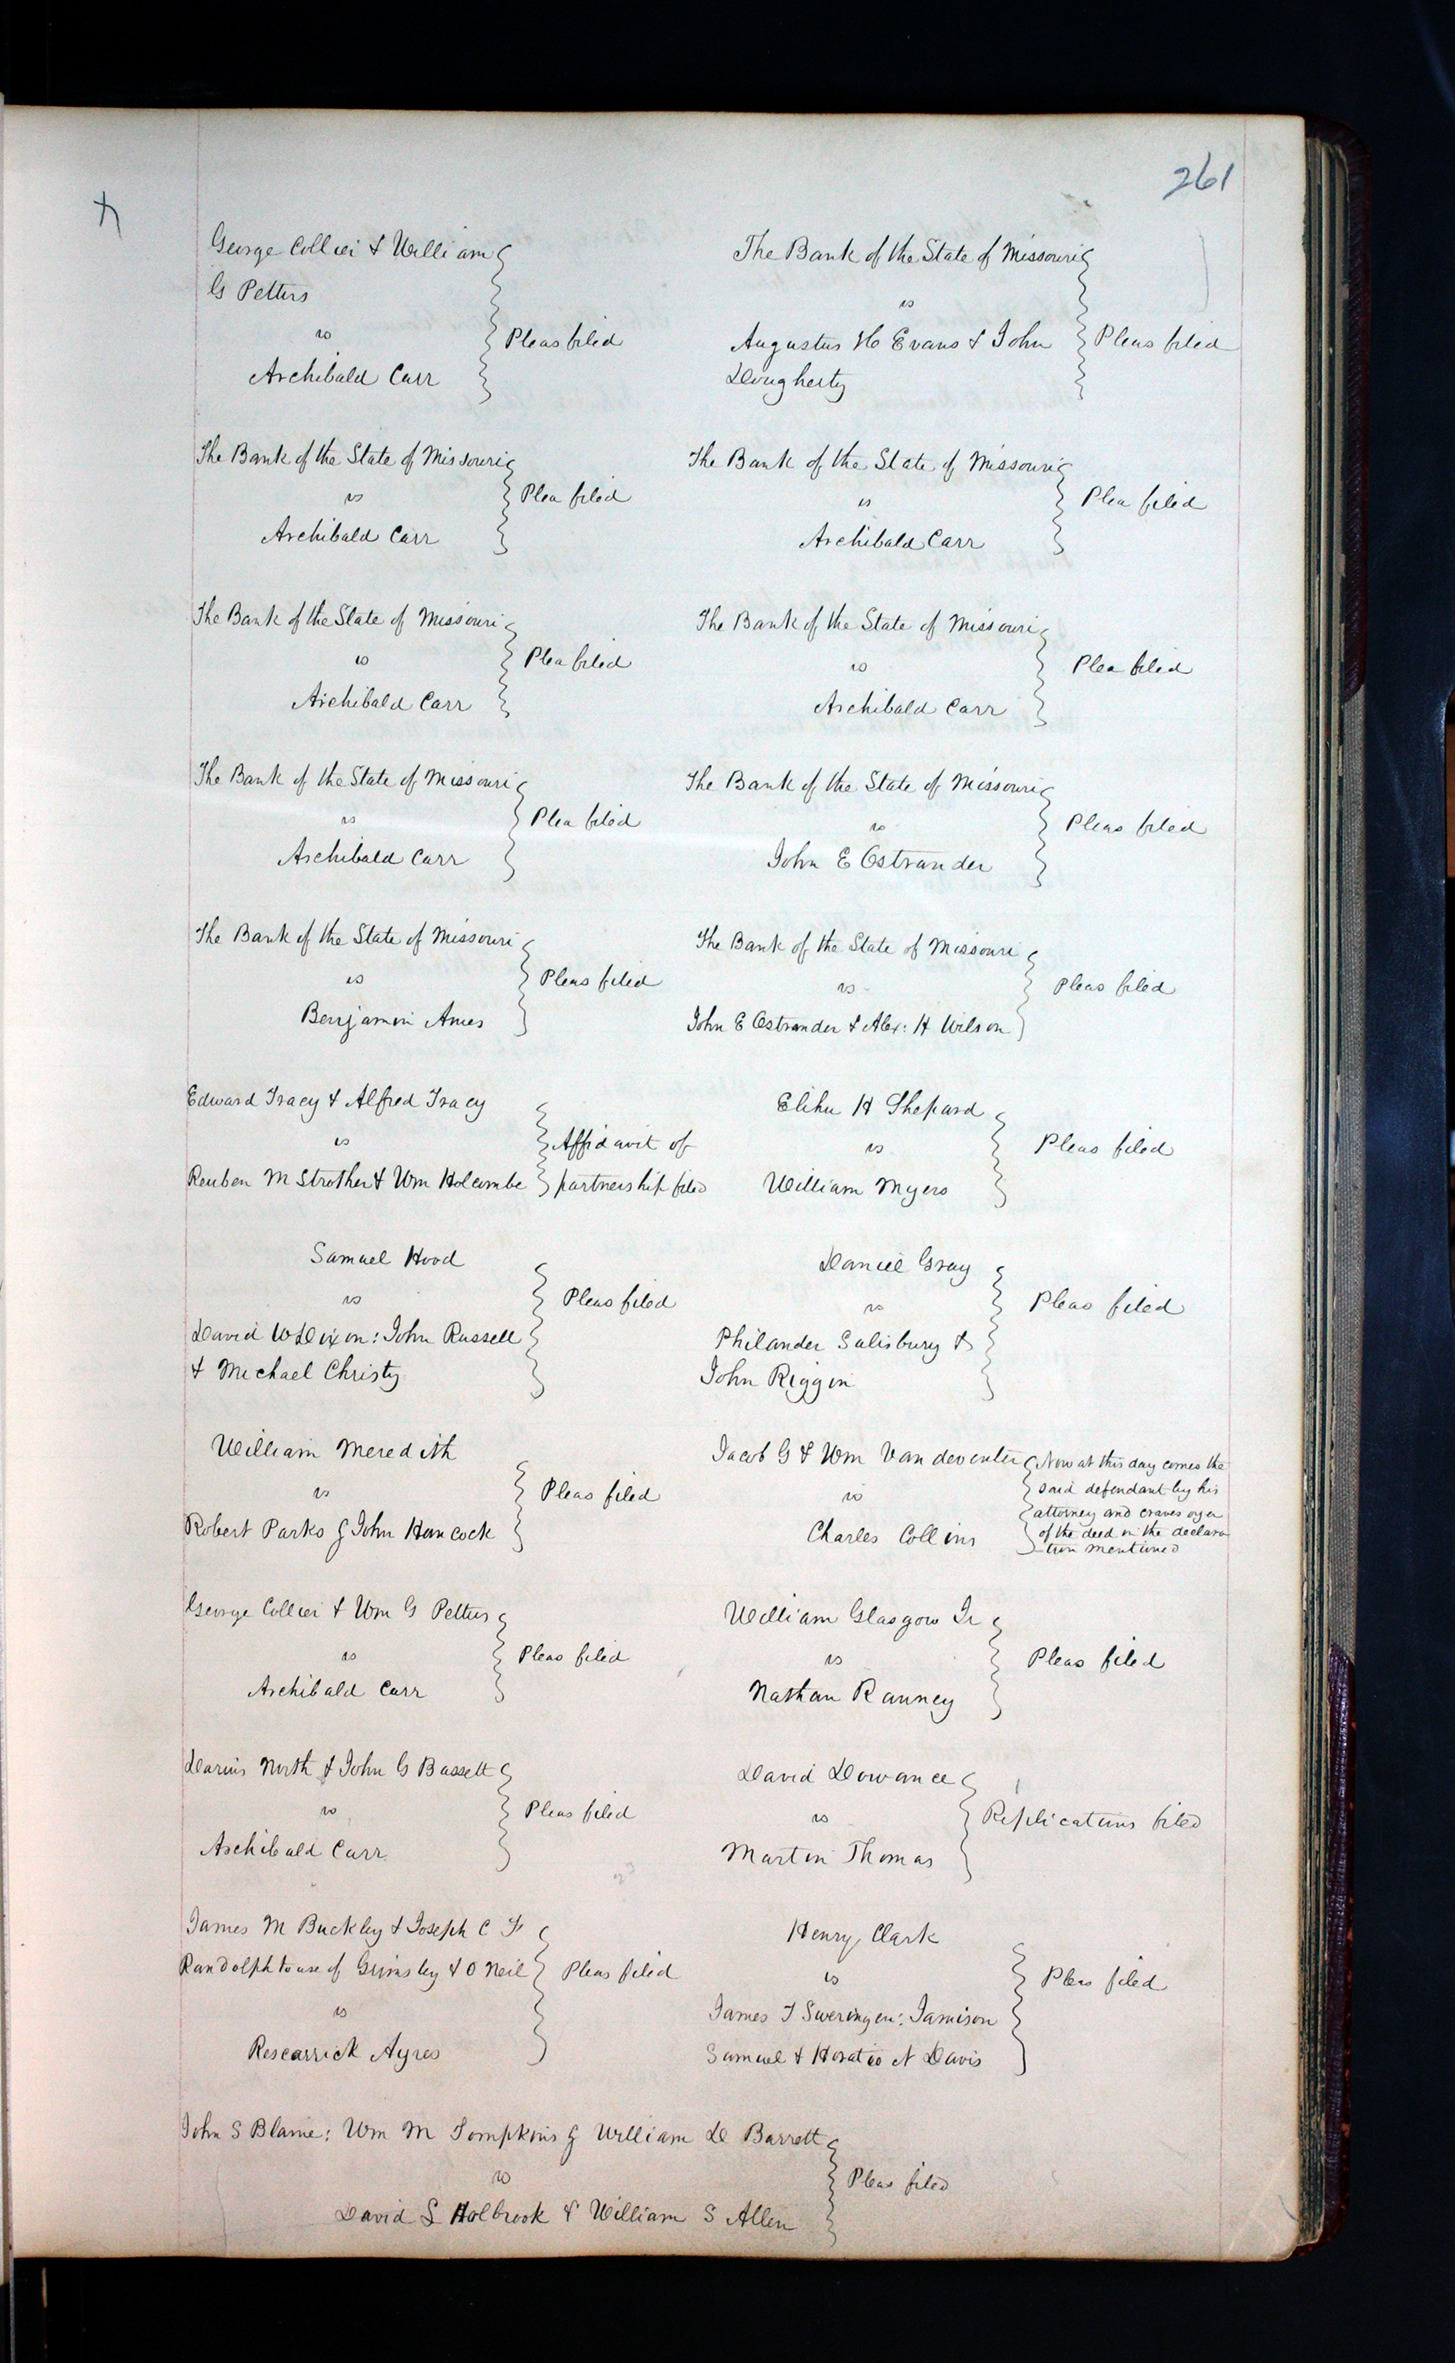 261
George Collier & William
G Pettus
vs
Archibald Carr
Pleas filed
The Bank of the State of Missouri
vs
Augustus H Evans & John
Dougherty
Pleas filed
The Bank of the State of Missouri
vs
Archibald Carr
Plea filed
The Bank of the State of Missouri
vs
Archibald Carr
Plea filed
The Bank of the State of Missouri
vs
Archibald Carr
Plea filed
The Bank of the State of Missouri
vs
Archibald Carr
Plea filed
The Bank of the State of Missouri
vs
Archibald Carr
Plea filed
The Bank of the State of Missouri
vs
John E Ostrander
Pleas filed
The Bank of the State of Missouri
vs
Benjamin Ames
Pleas filed
The Bank of the State of Missouri
vs
John E Ostrander & Alex: H Wilson
Pleas filed
Edward Tracy & Alfred Tracy
vs
Reuben M Strother & Wm Holcombe
Affidavit of
partnership filed
Elihu H Shepard
vs
William Myers
Pleas filed
Samuel Hood
vs
David W Dixon: John Russell
& Michael Christy
Pleas filed
Daniel Gray
vs
Philander Salisbury &
John Riggin
Pleas filed
William Meredith
vs
Robert Parks & John Hancock
Pleas filed
Jacob G & Wm Vandeventer
vs
Charles Collins
Now at this day comes the
said defendant by his
attorney and craves oyer
of the deed in the declara
-tion mentioned
George Collier & Wm G Pettus
vs
Archibald Carr
Pleas filed
William Glasgow Jr
vs
Nathan Ranney
Pleas filed
Darius North & John G Bassett
vs
Archibald Carr
Pleas filed
David Dowance
vs
Martin Thomas
Replications filed
James M Buckley & Joseph C F
Randolph to use of Grimsley & O Neil
vs
Rescarrick Ayres
Pleas filed
Henry Clark
vs
James T Sweringen: Jamison
Samuel & Horatio N Davis
Pleas filed
John S Blaine: Wm M Tompkins & William D Barrett
vs
David S Holbrook & William S Allen
Pleas filed